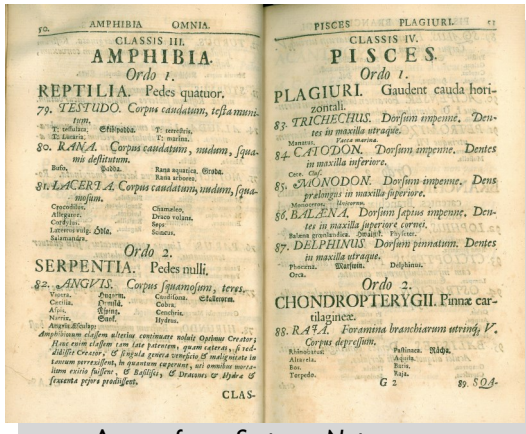 50. AMPHIBIA OMNIA.
CLASSIS III.
AMPHIBIA.
Ordo 1.
REPTILIA. Pedes quatuor.
79. TESTUDO. Corpus caudatum, testa muni-
tum.
T: tessulata, Sköldpadda. T: terrestris.
T: Lutaria. T: marina.
80. RANA. Corpus caudatum, nudum, squa-
mis destitutum.
Bufo. Padda. Rana aquatica. Groda.
Rana arborea.
81. LACERTA. Corpus caudatum, nudum, squa-
mosum.
Crocodilus. Chamæleo.
Allegator. Draco volans.
Cordylus. Seps
Lacertus vulg. Ödla. Scincus.
Salamandra.
Ordo 2.
SERPENTIA. Pedes nulli.
82. ANGVIS. Corpus squamosum, teres.
Vipera. Hugorm. Caudisona. Skallerorm.
Cæcilia. Ormslå. Cobra.
Aspis. Æsping. Cenchris.
Natrix. Snok. Hydrus.
Anguis Æsculap:
Amphibiorum classem ulterius continuare noluit Optimus Creator;
Hanc enim classem tam late patentem, quam cæteras, si red-
didisset Creator, & singula genera veneficio & malignitate in
tantum perrexissent, in quantum ceperunt, uti omnibus morta-
lium exitio fuissent, & Basilisci, & Dracones & Hydræ &
sexcenta pejora prodiissent.
CLAS-
PISCES PLAGIURI. 51
CLASSIS IV.
PISCES.
Ordo 1.
PLAGIURI. Gaudent cauda hori-
zontali.
83. TRICHECHUS. Dorsum impenne. Den-
tes in maxilla utraque.
Manatus. Vacca marina.
84. CATODON. Dorsum impenne. Dentes
in maxilla inferiore.
Cete. Clus.
85. MONODON. Dorsum impenne. Dens
prælongus in maxilla superiore.
Monoceros. Unicornu.
86. BALÆNA. Dorsum sæpius impenne. Den-
tes in maxilla superiore cornei.
Balæna grœnlandica. Hwalfisk. Physeter.
87. DELPHINUS. Dorsum pinnatum. Dentes
in maxilla utraque.
Phocæna. Marswin. Delphinus.
Orca.
Ordo 2.
CHONDROPTERYGII. Pinnæ car-
tilagineæ.
88. RAJA. Foramina branchiarum utrinq; V.
Corpus depressum.
Rhinobatus. Pastinaca. Råcka.
Altavela. Aquila.
Bos. Batis.
Torpedo. Raja.
G 2 89. SQA-